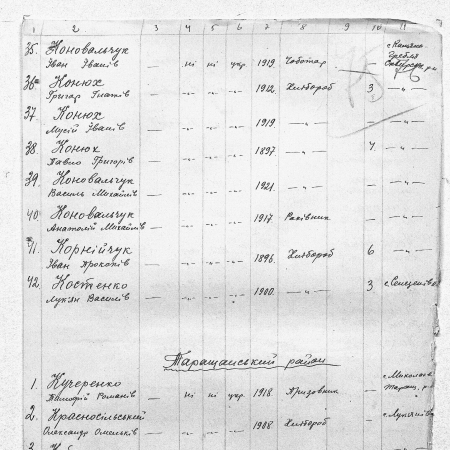 1 2 3 4 5 6 7 8 9 10 11
35. Коновальчук
Іван Іванів — ні ні укр. 1919 Чоботар — с. Кам'яна
Гребля
36 Конюх
Григор Гнатів — -"- -"- -"- 1912. Хлібороб 3 — " —
37. Конюх
Мусій Іванів — -"- -"- -"- 1919 — " — — — " —
38. Конюх
Павло Григорів — -"- -"- -"- 1897 — " — 7. — " —
39. Коновальчук
Василь Михайлів — -"- -"- -"- 1921. — " — — — " —
40. Коновальчук
Анатолій Михайлів — -"- -"- -"- 1917. — — " —
41. Корнійчук
Іван Прокопів — -"- -"- -"- 1896. Хлібороб 6 — " —
42. Костенко
Лукян Василів — -"- -"- -"- 1900. — " — 3
Таращанський район
1. Кучеренко
Тимофій Романів — ні ні укр. 1918. Призовник —
2. Красносільський
Олександр Омельків — -"- -"- -"- 1908 Хлібороб —